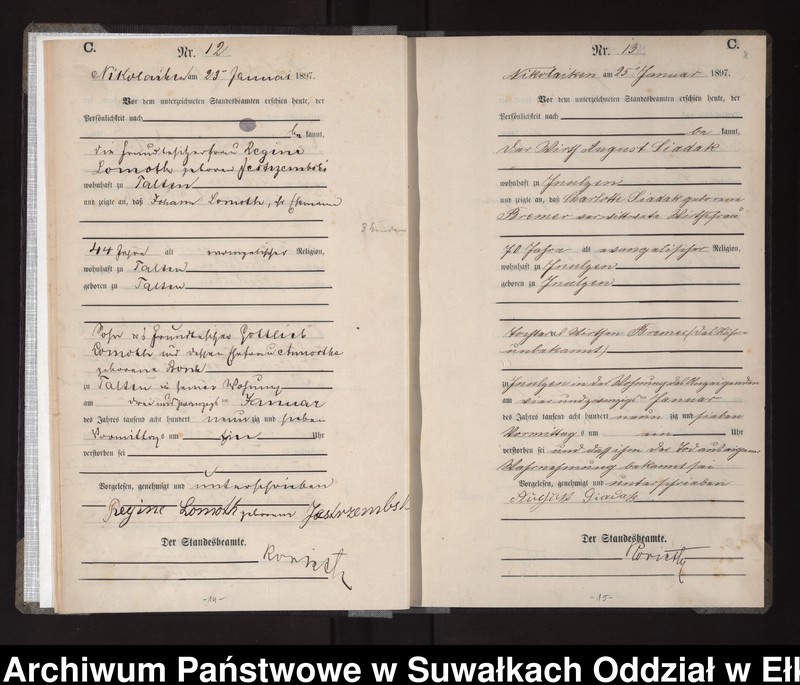 C.
Nr. 12
Nikolaiken am 25 Januar 1897.
Vor dem unterzeichneten Standesbeamten erschien heute, der
Persönlichkeit nach
be kannt,
die Grundbesitzerfrau Regine
Lomoth geborne Jestrzembski
wohnhaft zu Talten
und zeigte an, daß Johann Lomoth, ihr Ehemann
44 Jahre alt evangelischer Religion,
wohnhaft zu Talten
geboren zu Talten
Sohn des Grundbesitzer Gottlieb
Lomoth und dessen Ehefrau
geborene
zu Talten in seiner Wohnung
am drei und zwanzigs ten Januar
des Jahres tausend acht hundert neun zig und sieben
Vormittags um vier Uhr
verstorben sei
Vorgelesen, genehmigt und unterschrieben
Regine Lomoth geborene Jestrzembski
Der Standesbeamte.
-14-
Nr. 13
C.
Nikolaiken am 25 Januar 1897.
Vor dem unterzeichneten Standesbeamten erschien heute, der
Persönlichkeit nach
be kannt,
der Wirth August Siadak
wohnhaft zu
und zeigte an, daß Charlotte Siadak geborene
Bremer verwittwete Wirthsfrau
70 Jahre alt evangelischer Religion,
wohnhaft zu
geboren zu
Tochter Wirthen Bremer
unbekannt
zu in der Wohnung des Anzeigenden
am vier und zwanzigsten Januar
des Jahres tausend acht hundert neun zig und sieben
Vormittag s um ein Uhr
verstorben sei und daß ihm der Tod aus eigener
Wahrnehmung bekannt sei
Vorgelesen, genehmigt und unterschrieben
August Siadak
Der Standesbeamte.
-15-
Archiwum Państwowe w Suwałkach Oddział w Ełk